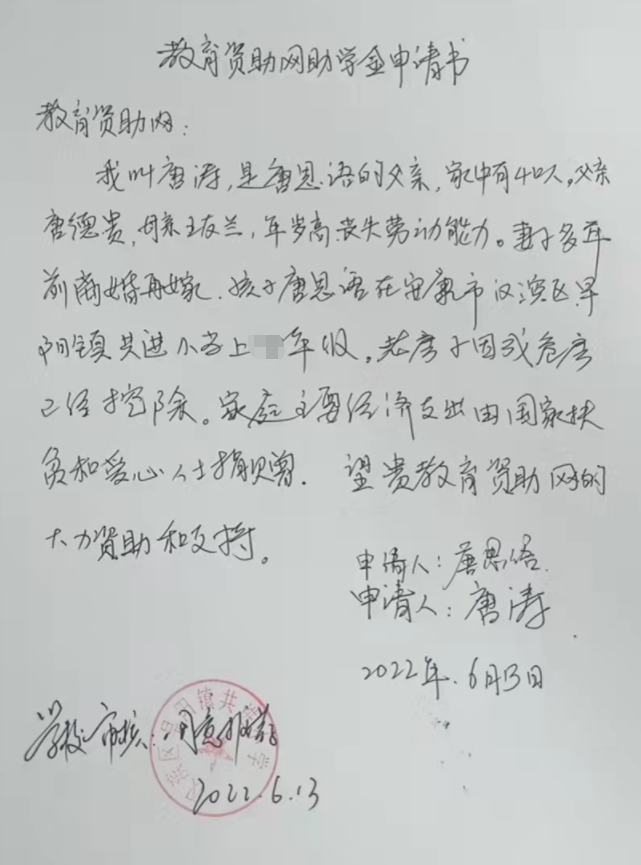 教育资助网助学金申请书
教育资助网：
我叫唐涛，是唐思语的父亲，家中有4口人，父亲
唐德贵，母亲王友兰，年岁高丧失劳动能力。妻子多年
前离婚再嫁．孩子唐思语在安康市汉滨区早
阳镇共进小学上年级，老房子因成危房
已经挖除。家庭主要经济支出由国家扶
贫和爱心人士捐赠．望贵教育资助网的
大力资助和支持。
申请人：唐思语．
申请人：唐涛
2022年．6月13日
学校审核：同意推荐
2022.6.13
汉滨区早阳镇共进小学